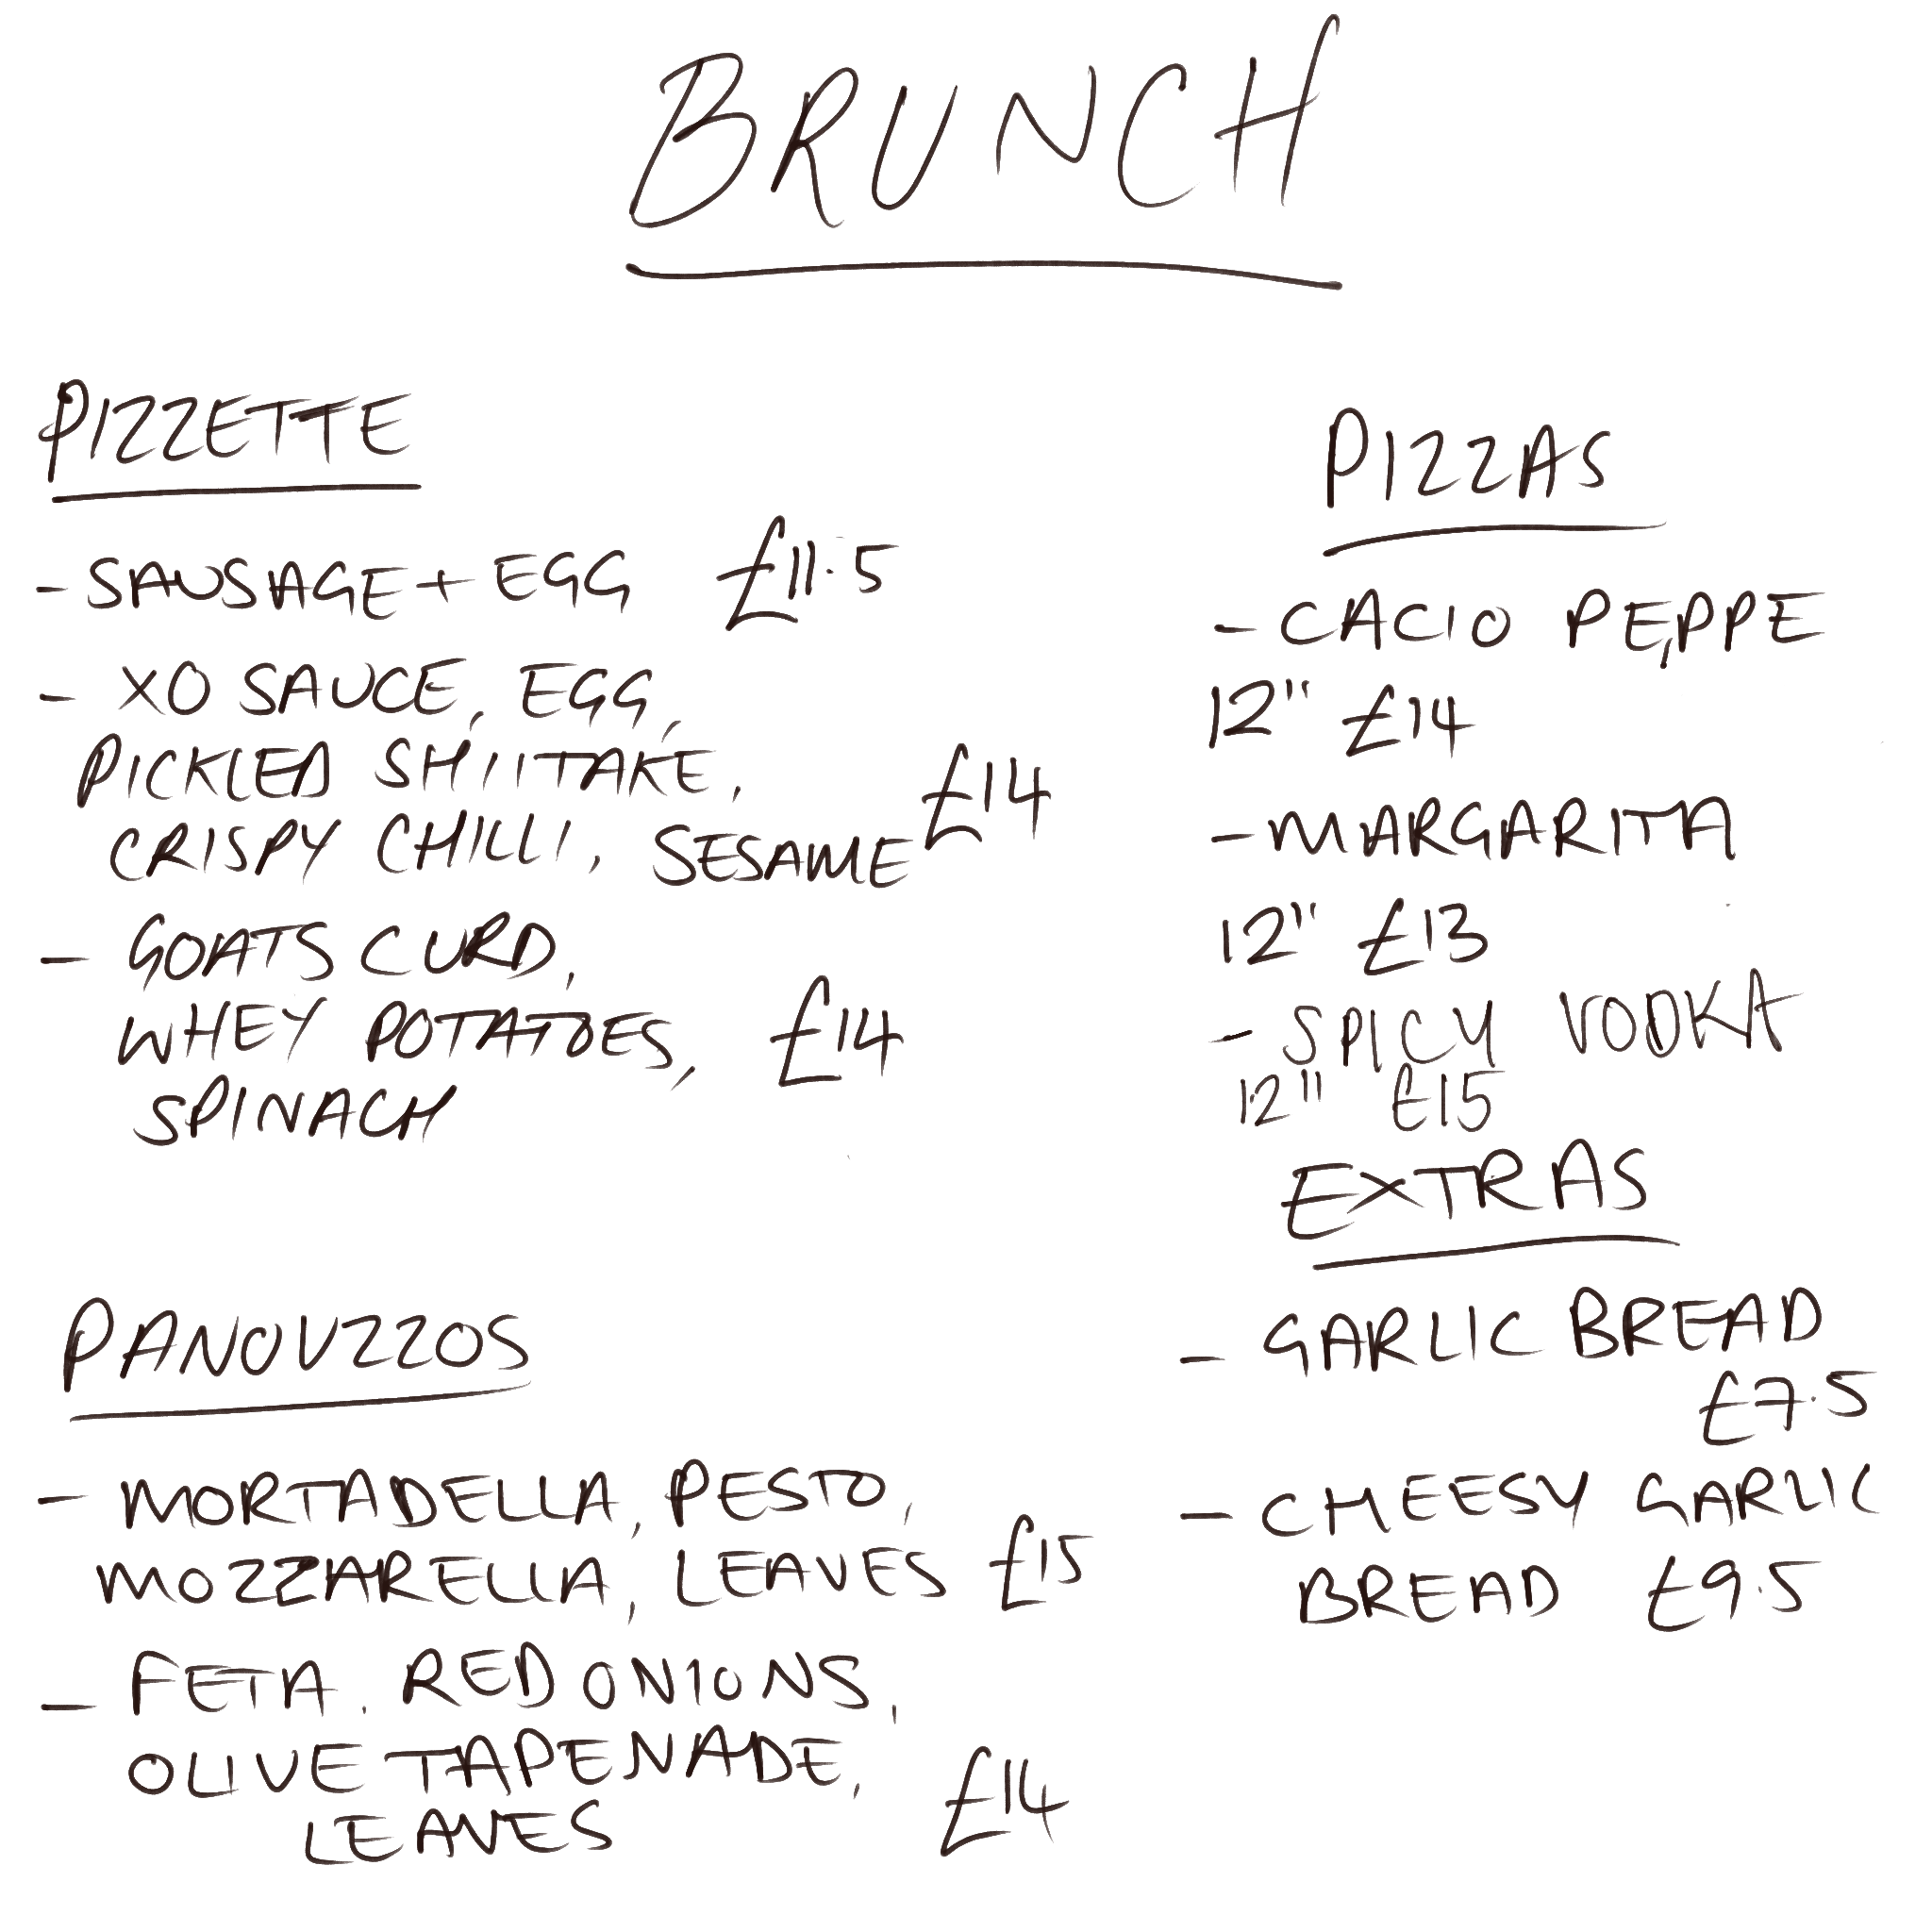 BRUNCH
PIZZETTE
- SAUSAGE + EGG £11.5
- XO SAUCE, EGG,
PICKLED SHIITAKE,
CRISPY CHILLI, SESAME £14
- GOATS CURD,
WHEY POTATOES, £14
SPINACH
PANOUZZOS
- MORTADELLA, PESTO,
MOZZARELLA, LEAVES £15
- FETA, RED ONIONS,
OLIVE TAPENADE,
LEAVES £14
PIZZAS
- CACIO PEPPE
12" £14
- MARGARITA
12" £13
- SPICY VODKA
12" £15
EXTRAS
- GARLIC BREAD
£7.5
- CHEESY GARLIC
BREAD £9.5